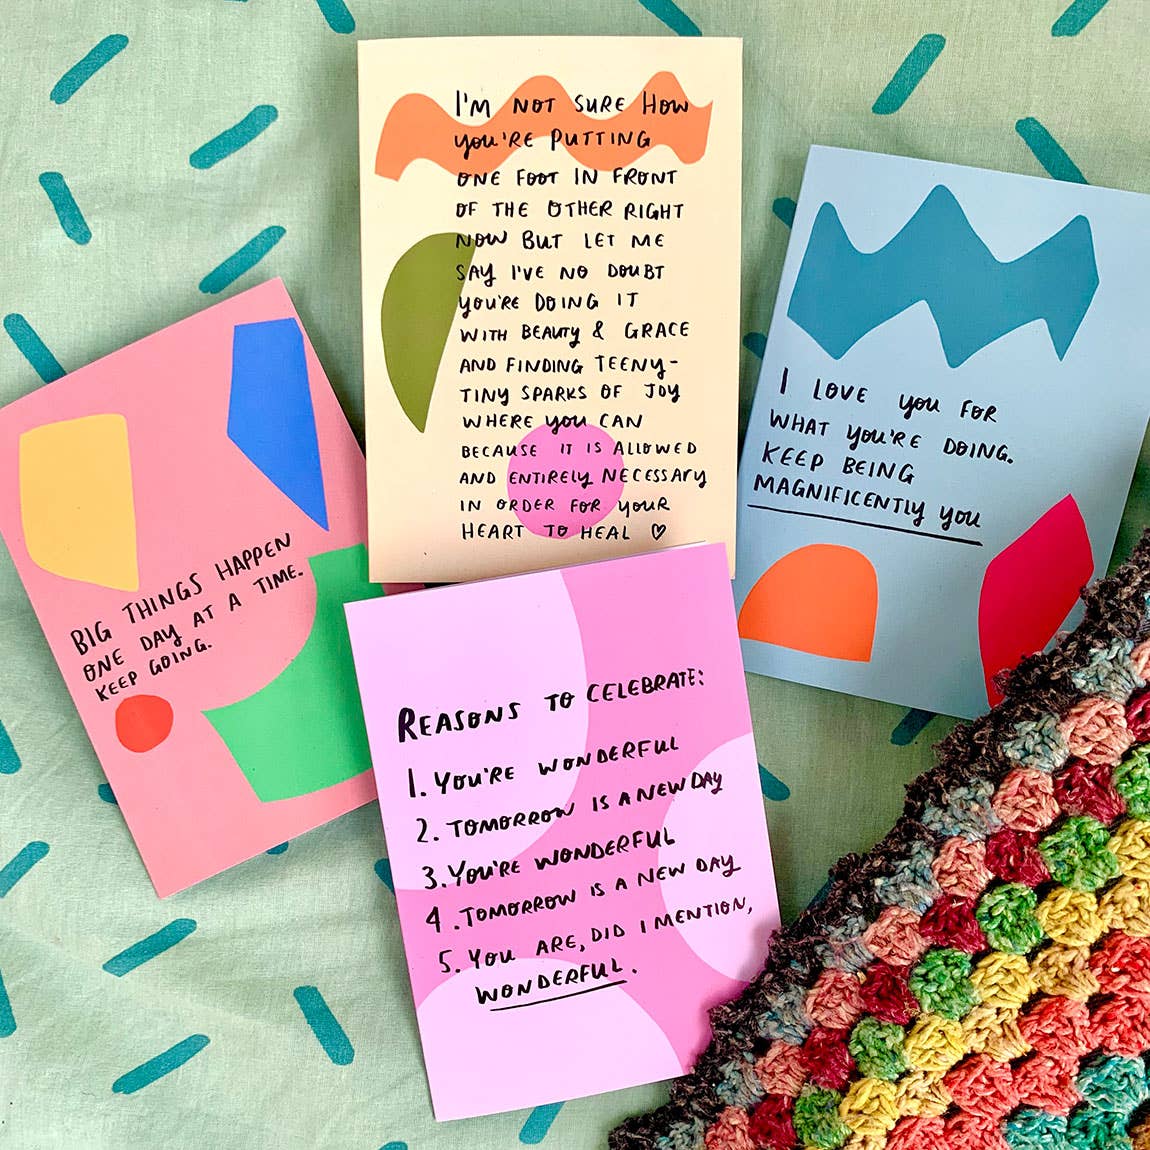 I'M NOT SURE HOW
you'RE PUTTING
ONE FOOT IN FRONT
OF THE OTHER RIGHT
NOW BUT LET ME
SAY I'VE NO DOUBT
YOU'RE DOING IT
WITH BEAUTY & GRACE
AND FINDING TEENY-
TINY SPARKS OF JOY
WHERE you CAN
BECAUSE IT IS ALLOWED
AND ENTIRELY NECESSARY
IN ORDER FOR YOUR
HEART TO HEAL ♡
I LOVE you FOR
WHAT YOU'RE DOING.
KEEP BEING
MAGNIFICENTLY YOU
BIG THINGS HAPPEN
ONE DAY AT A TIME.
KEEP GOING.
REASONS TO CELEBRATE:
1. YOU'RE WONDERFUL
2. TOMORROW IS A NEW DAY
3. YOU'RE WONDERFUL
4. TOMORROW IS A NEW DAY
5. YOU ARE, DID I MENTION,
WONDERFUL.